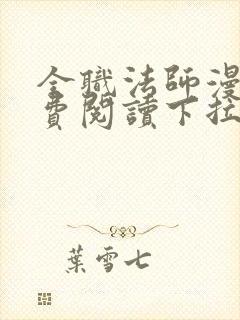 全職法師漫
費閱讀下拉
葉雪七